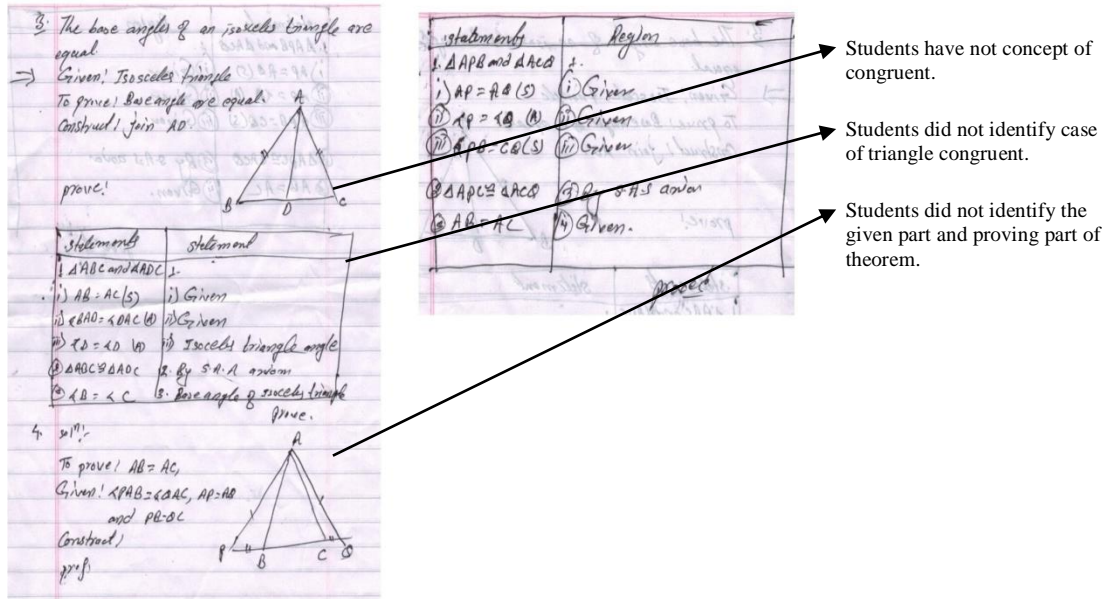 3. The base angles of an isosceles triangle are
equal
→ Given! Isosceles triangle
To prove! Base angle are equal.
Construct! join AD
prove!
A
B D C
statements statement
1. ΔABC and ΔADC 1.
i) AB = AC (S) i) Given
ii) ∠BAD = ∠DAC (A) ii) Given
iii) ∠D = ∠D (A) iii) Isoceles triangle angle
② ΔABC ≅ ΔADC 2. By S.A.A axiom
③ ∠B = ∠C 3. Base angle of isoceles triangle
prove.
4. solⁿ:-
To prove! AB = AC,
Given! ∠PAB = ∠QAC, AP = AQ
and PB = QC
Construct!
prof:
A
P B C Q
statements Region
1. ΔAPB and ΔACQ 1.
i) AP = AQ (S) i) Given
ii) ∠P = ∠Q (A) ii) Given
iii) PB = CQ (S) iii) Given
② ΔAPC ≅ ΔACQ By S.A.S axiom
③ AB = AC Given.
proved
Students have not concept of
congruent.
Students did not identify case
of triangle congruent.
Students did not identify the
given part and proving part of
theorem.